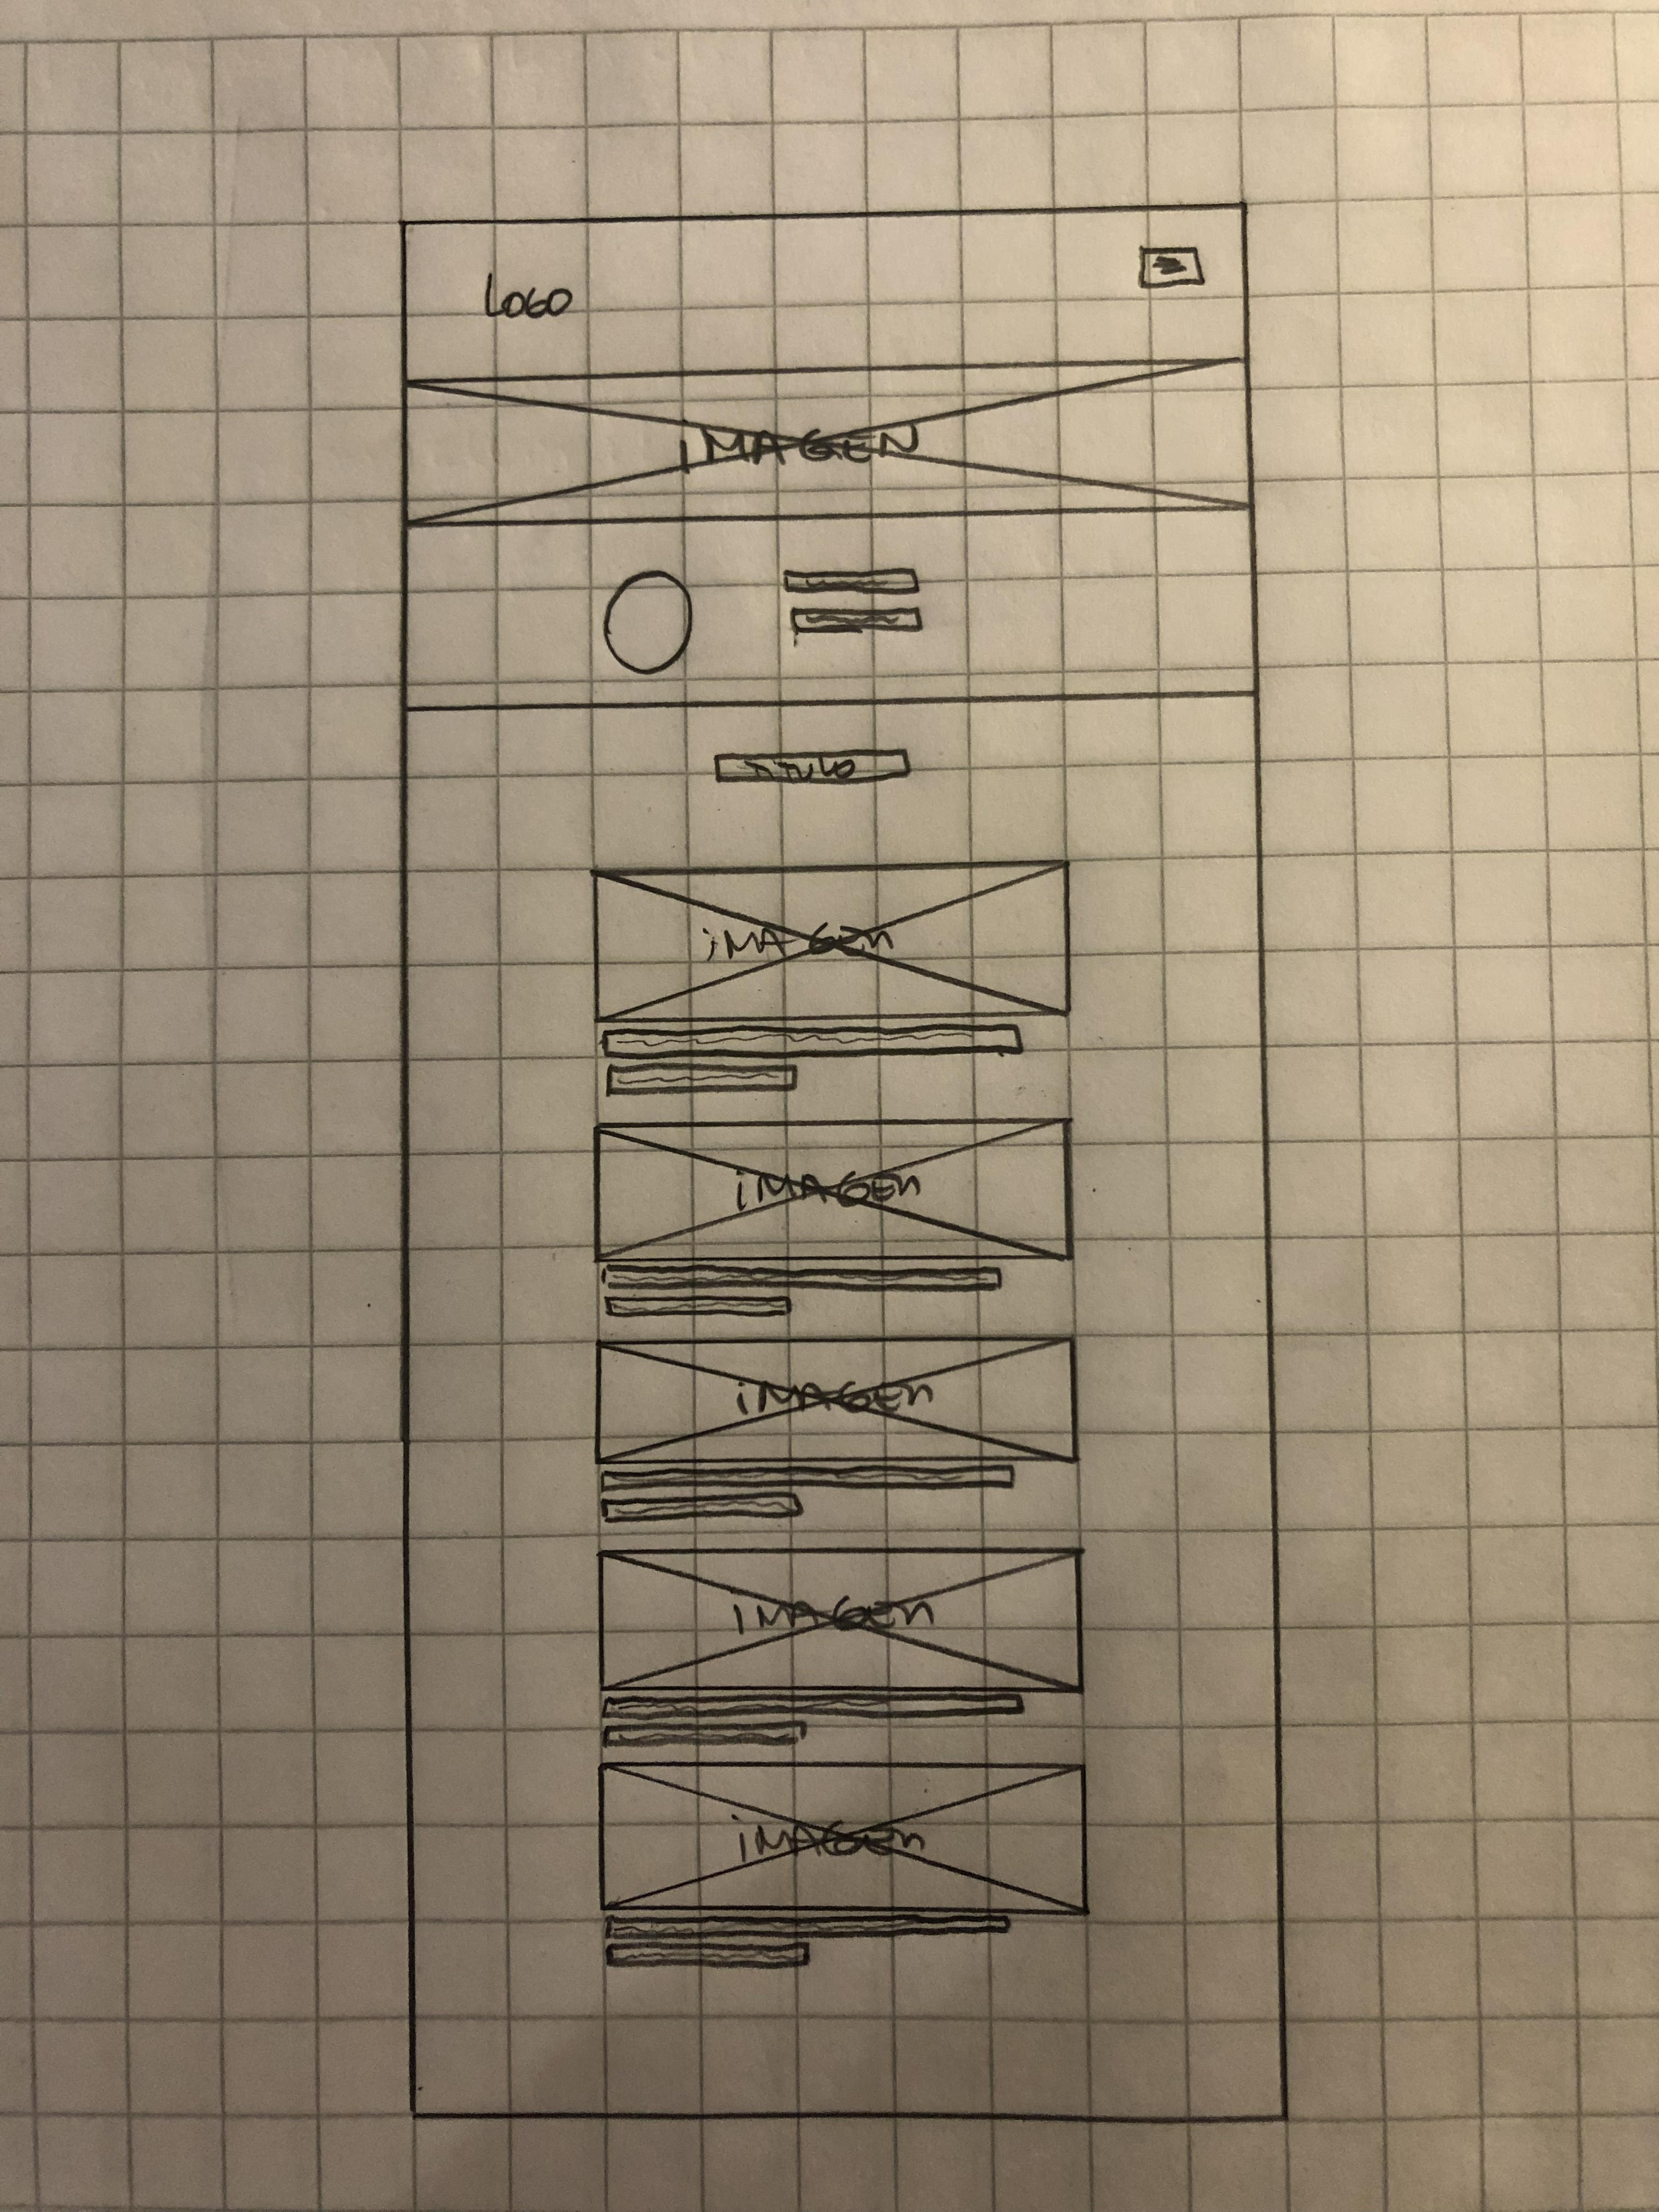 LOGO
iMAGEN
TiTULO
iMAGEN
iMAGEN
iMAGEN
iMAGEN
iMAGEN